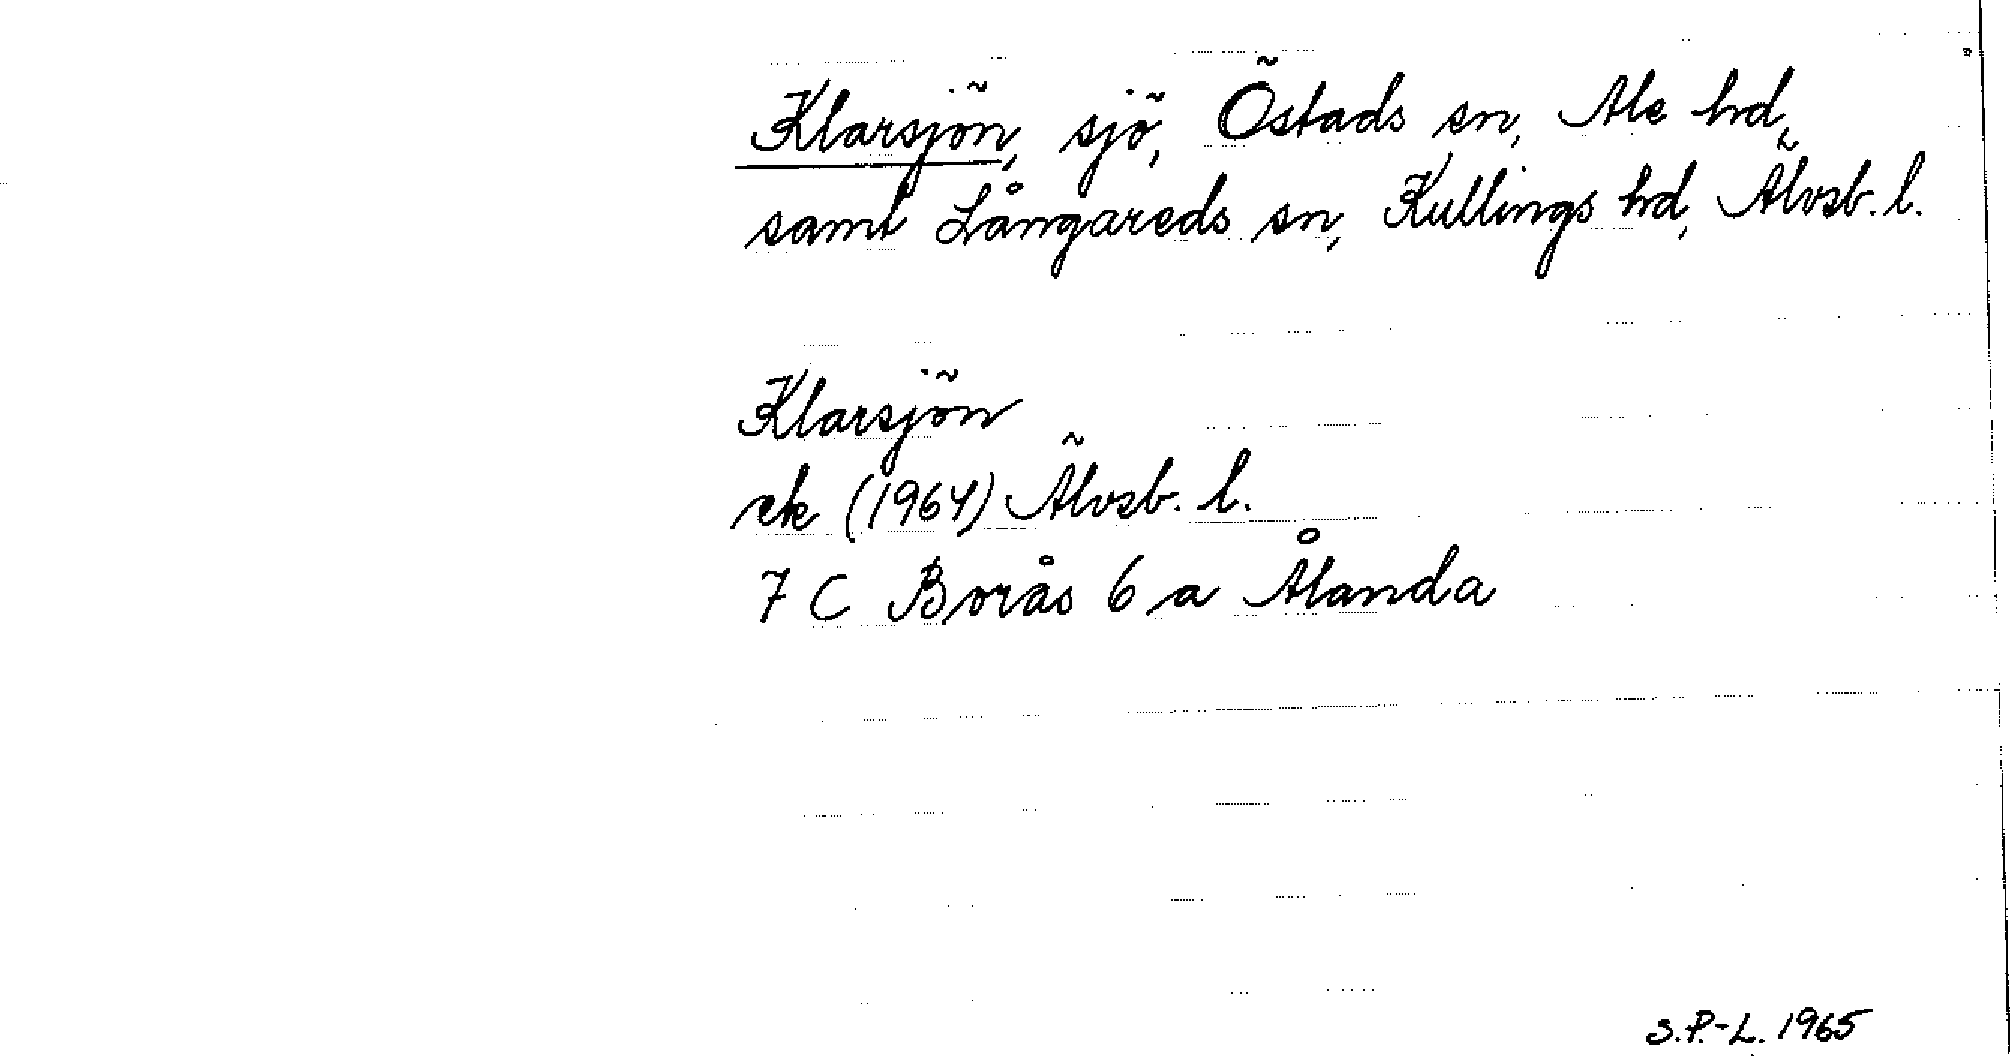 Klarsjön, sjö, Östads sn, Ale hd,
samt Långareds sn, Kullings hd, Älvsb. l.
Klarsjön
ek (1964) Älvsb. l.
7 C Borås 6 a Ålanda
S.P.-L. 1965